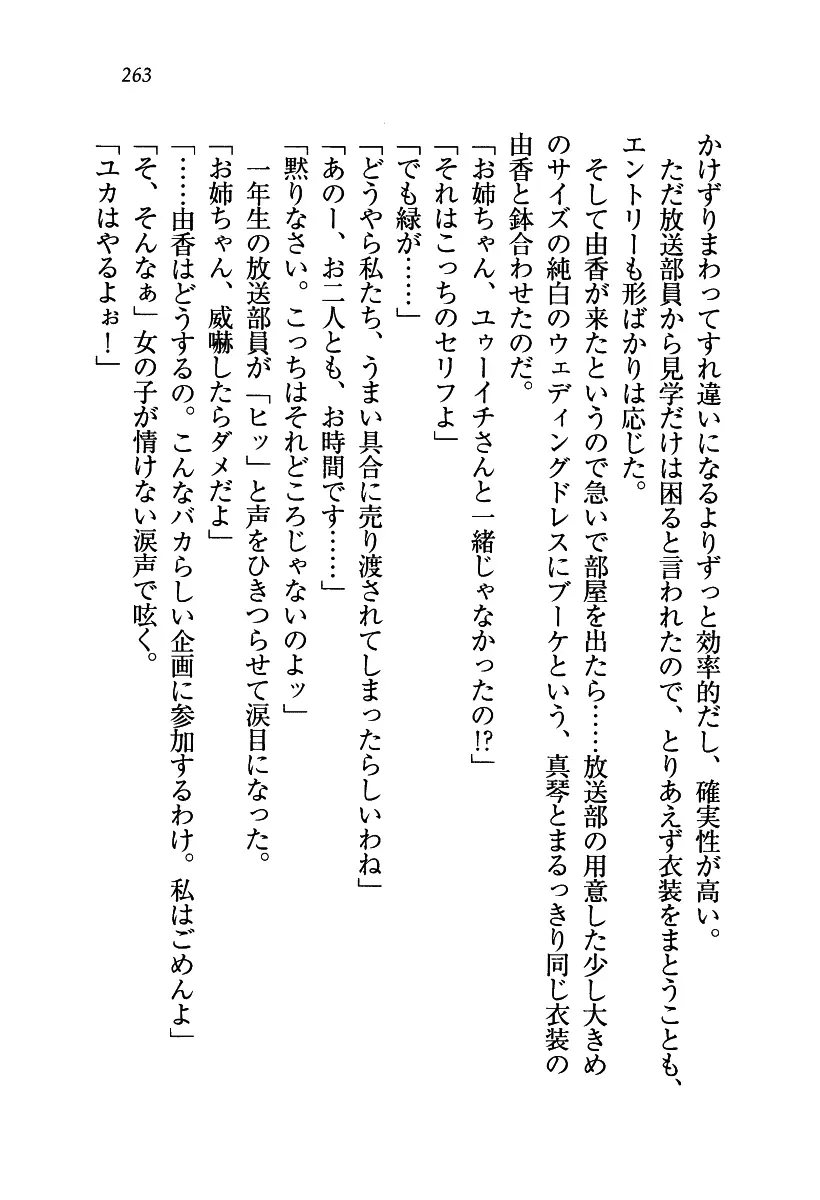 263
かけずりまわってすれ違いになるよりずっと効率的だし、確実性が高い。
ただ放送部員から見学だけは困ると言われたので、とりあえず衣装をまとうことも、
エントリーも形ばかりは応じた。
そして由香が来たというので急いで部屋を出たら……放送部の用意した少し大きめ
のサイズの純白のウェディングドレスにブーケという、真琴とまるっきり同じ衣装の
由香と鉢合わせたのだ。
「お姉ちゃん、ユゥーイチさんと一緒じゃなかったの!?」
「それはこっちのセリフよ」
「でも緑が……」
「どうやら私たち、うまい具合に売り渡されてしまったらしいわね」
「あのー、お二人とも、お時間です……」
「黙りなさい。こっちはそれどころじゃないのよッ」
一年生の放送部員が「ヒッ」と声をひきつらせて涙目になった。
「お姉ちゃん、威嚇したらダメだよ」
「……由香はどうするの。こんなバカらしい企画に参加するわけ。私はごめんよ」
「そ、そんなぁ」女の子が情けない涙声で呟く。
「ユカはやるよぉ！」